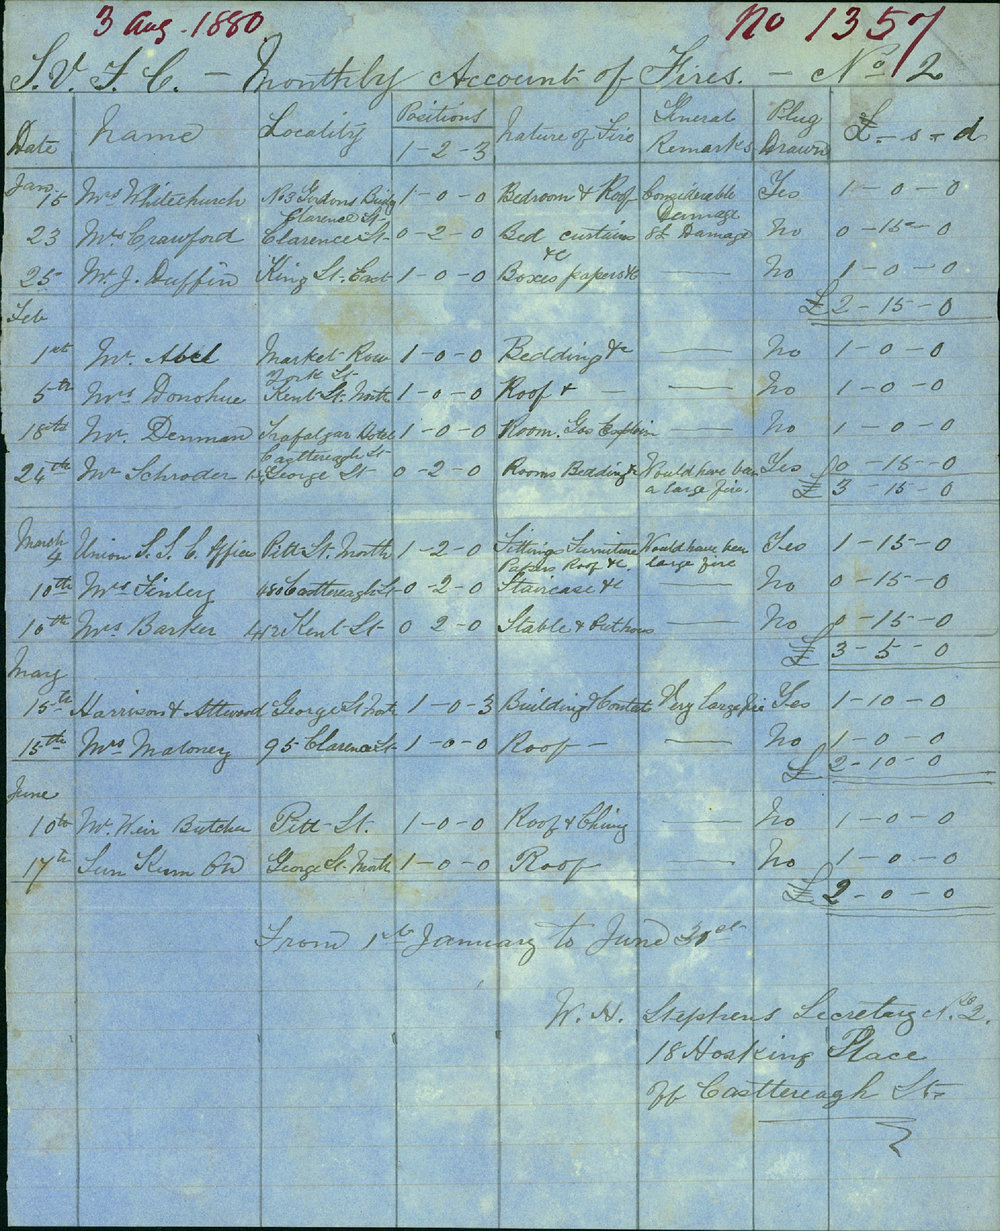 3 Aug. 1880 No 1357
S. V. F. C. — Monthly Account of Fires. — No 2
Date Name Locality Positions 1-2-3 Nature of Fire General Remarks Plug Drawn £ - s - d
Jan.
15 Mrs Whitechurch No 3 Gordons Bldg 1-0-0 Bedroom & Roof Considerable Yes 1-0-0
Clarence St Damage
23 Mrs Crawford Clarence St 0-2-0 Bed curtains Damage No 0-15-0
&c
25 Mr J. Duffin King St. East 1-0-0 Boxes papers &c — No 1-0-0
£2-15-0
Feb
1st Mr. Abel Market Row 1-0-0 Bedding &c — No 1-0-0
York St
5th Mrs Donohue Kent St. North 1-0-0 Roof & — — No 1-0-0
18th Mr. Denman Trafalgar Hotel 1-0-0 Room. Gas — No 1-0-0
Castlereagh St
24th Mr Schroder George St 0-2-0 Rooms Bedding &c Would have been Yes 0-15-0
a large fire. £ 3-15-0
March
4 Union S. S. C. Offices Pitt St. North 1-2-0 Fittings Furniture Would have been Yes 1-15-0
Papers Roof &c. large fire
10th Mrs Finley 180 Castlereagh St 0-2-0 Staircase &c — No 0-15-0
16th Mrs Barker Kent St 0 2-0 Stable & Outhous — No 0-15-0
£ 3-5-0
May
15th Harrison & Attwood George St Nth 1-0-3 Building & Contents Very large fire Yes 1-10-0
15th Mrs Maloney 95 Clarence St 1-0-0 Roof — — No 1-0-0
£ 2-10-0
June
10th Mr. Weir Butcher Pitt St. 1-0-0 Roof & Chimy — No 1-0-0
17th Sun Kum On George St. North 1-0-0 Roof — No 1-0-0
£ 2-0-0
From 1st January to June
W. H. Stephens Secretary No. 2.
18 Hosking Place
Off Castlereagh St.